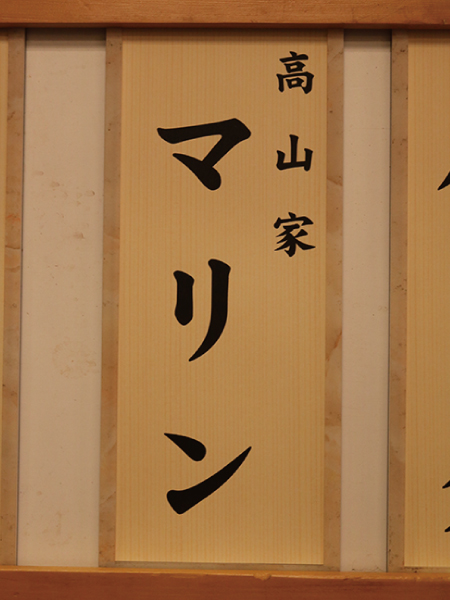 高山家
マリン